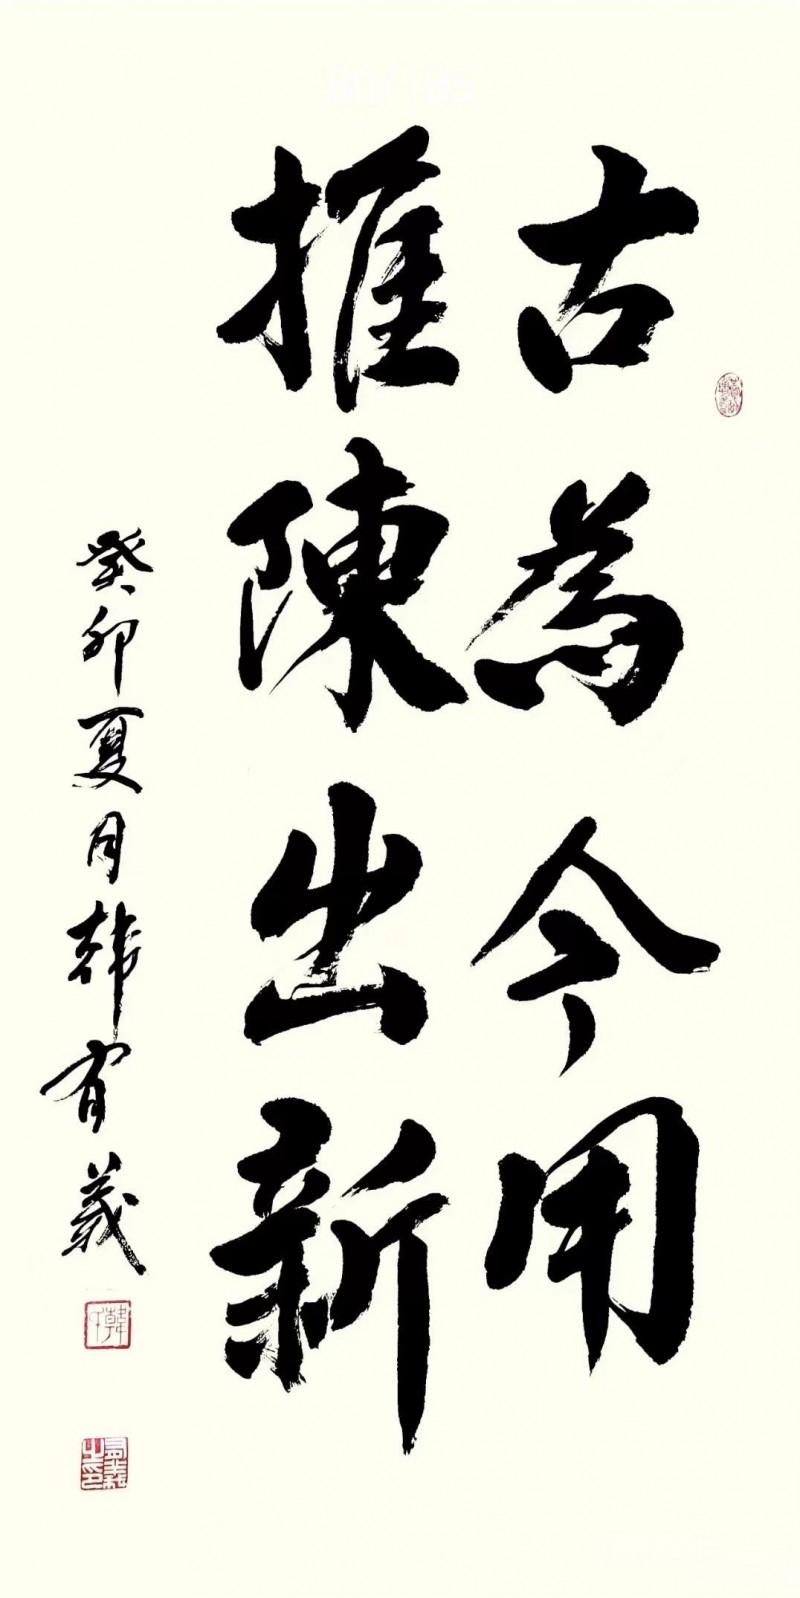 古為今用
推陳出新
癸卯夏月韩宥義